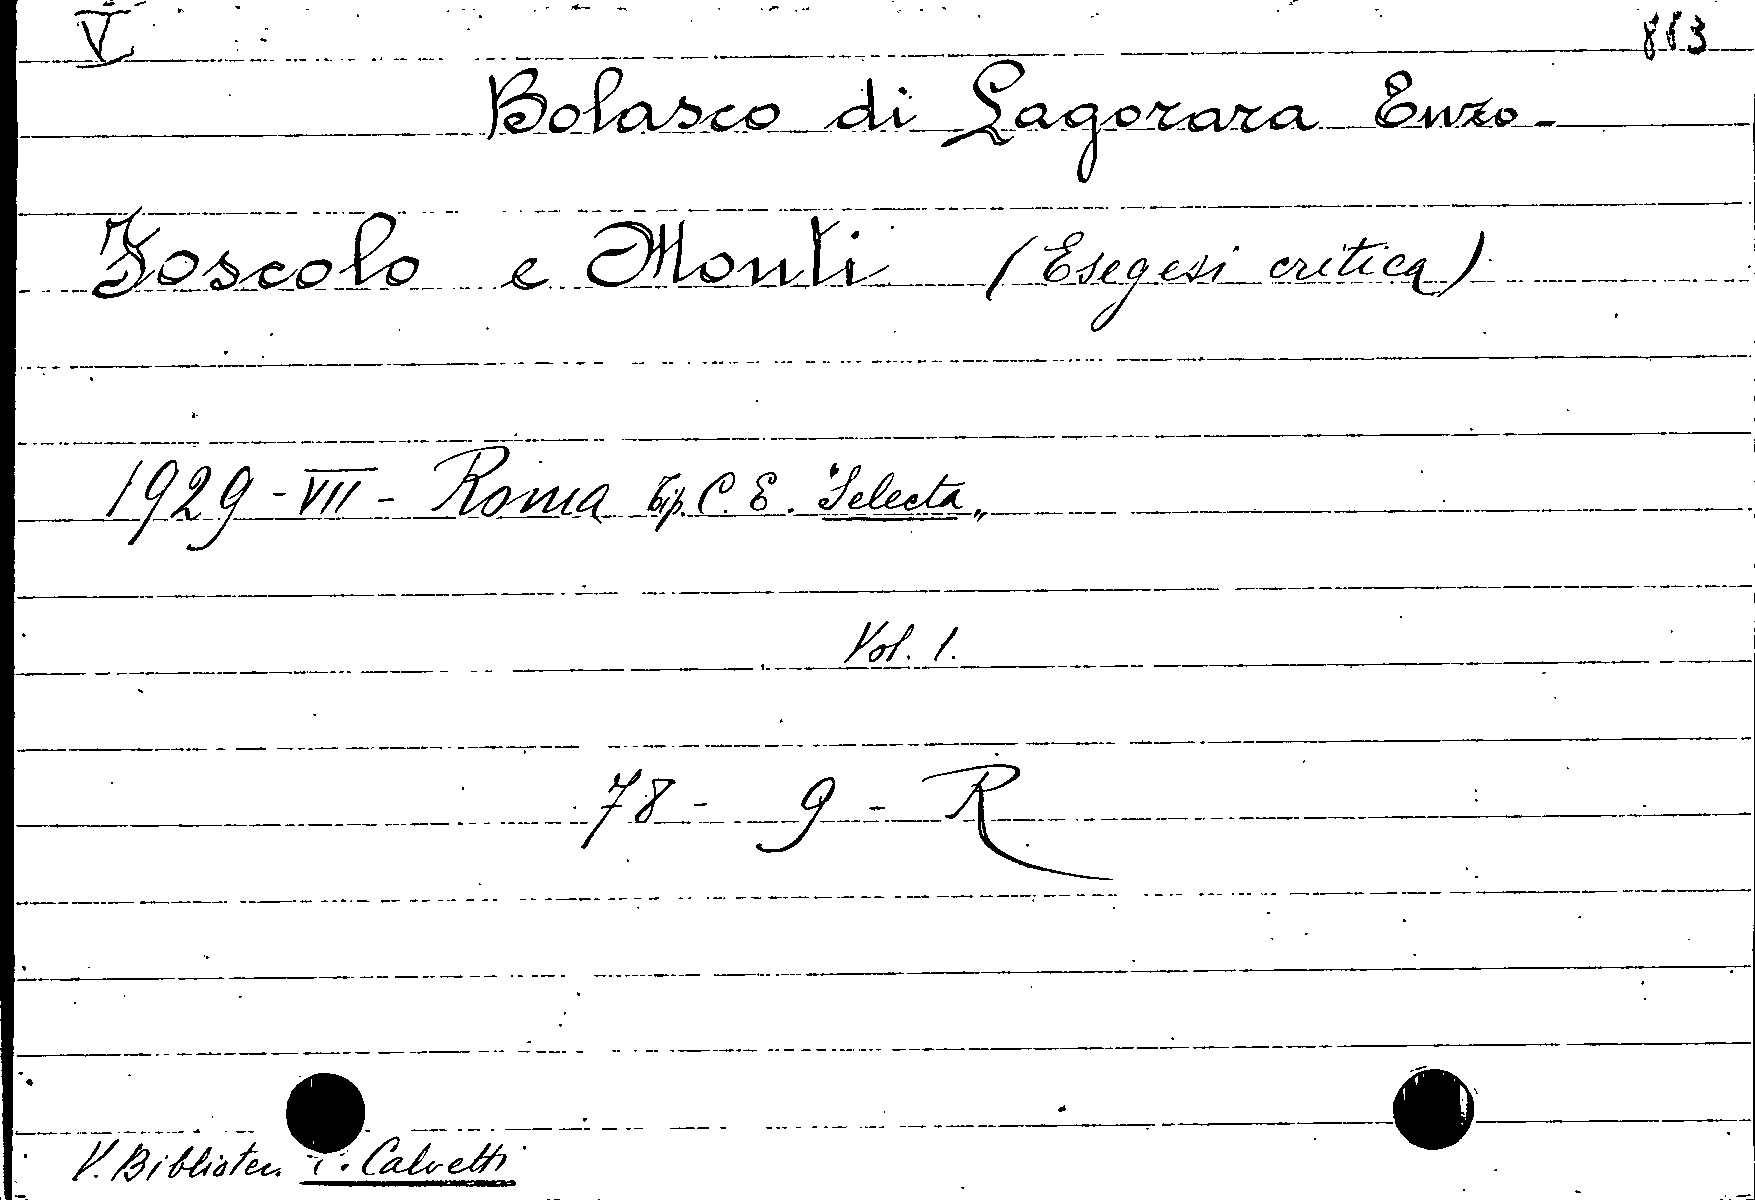 V
883
Bolasco di Lagorara Enzo-
Foscolo e Monti (Esegesi critica)
1929-VII- Roma tip. C. E. "Selecta„
Vol. 1.
78- 9 - R
V. Bibliotec. Calvetti